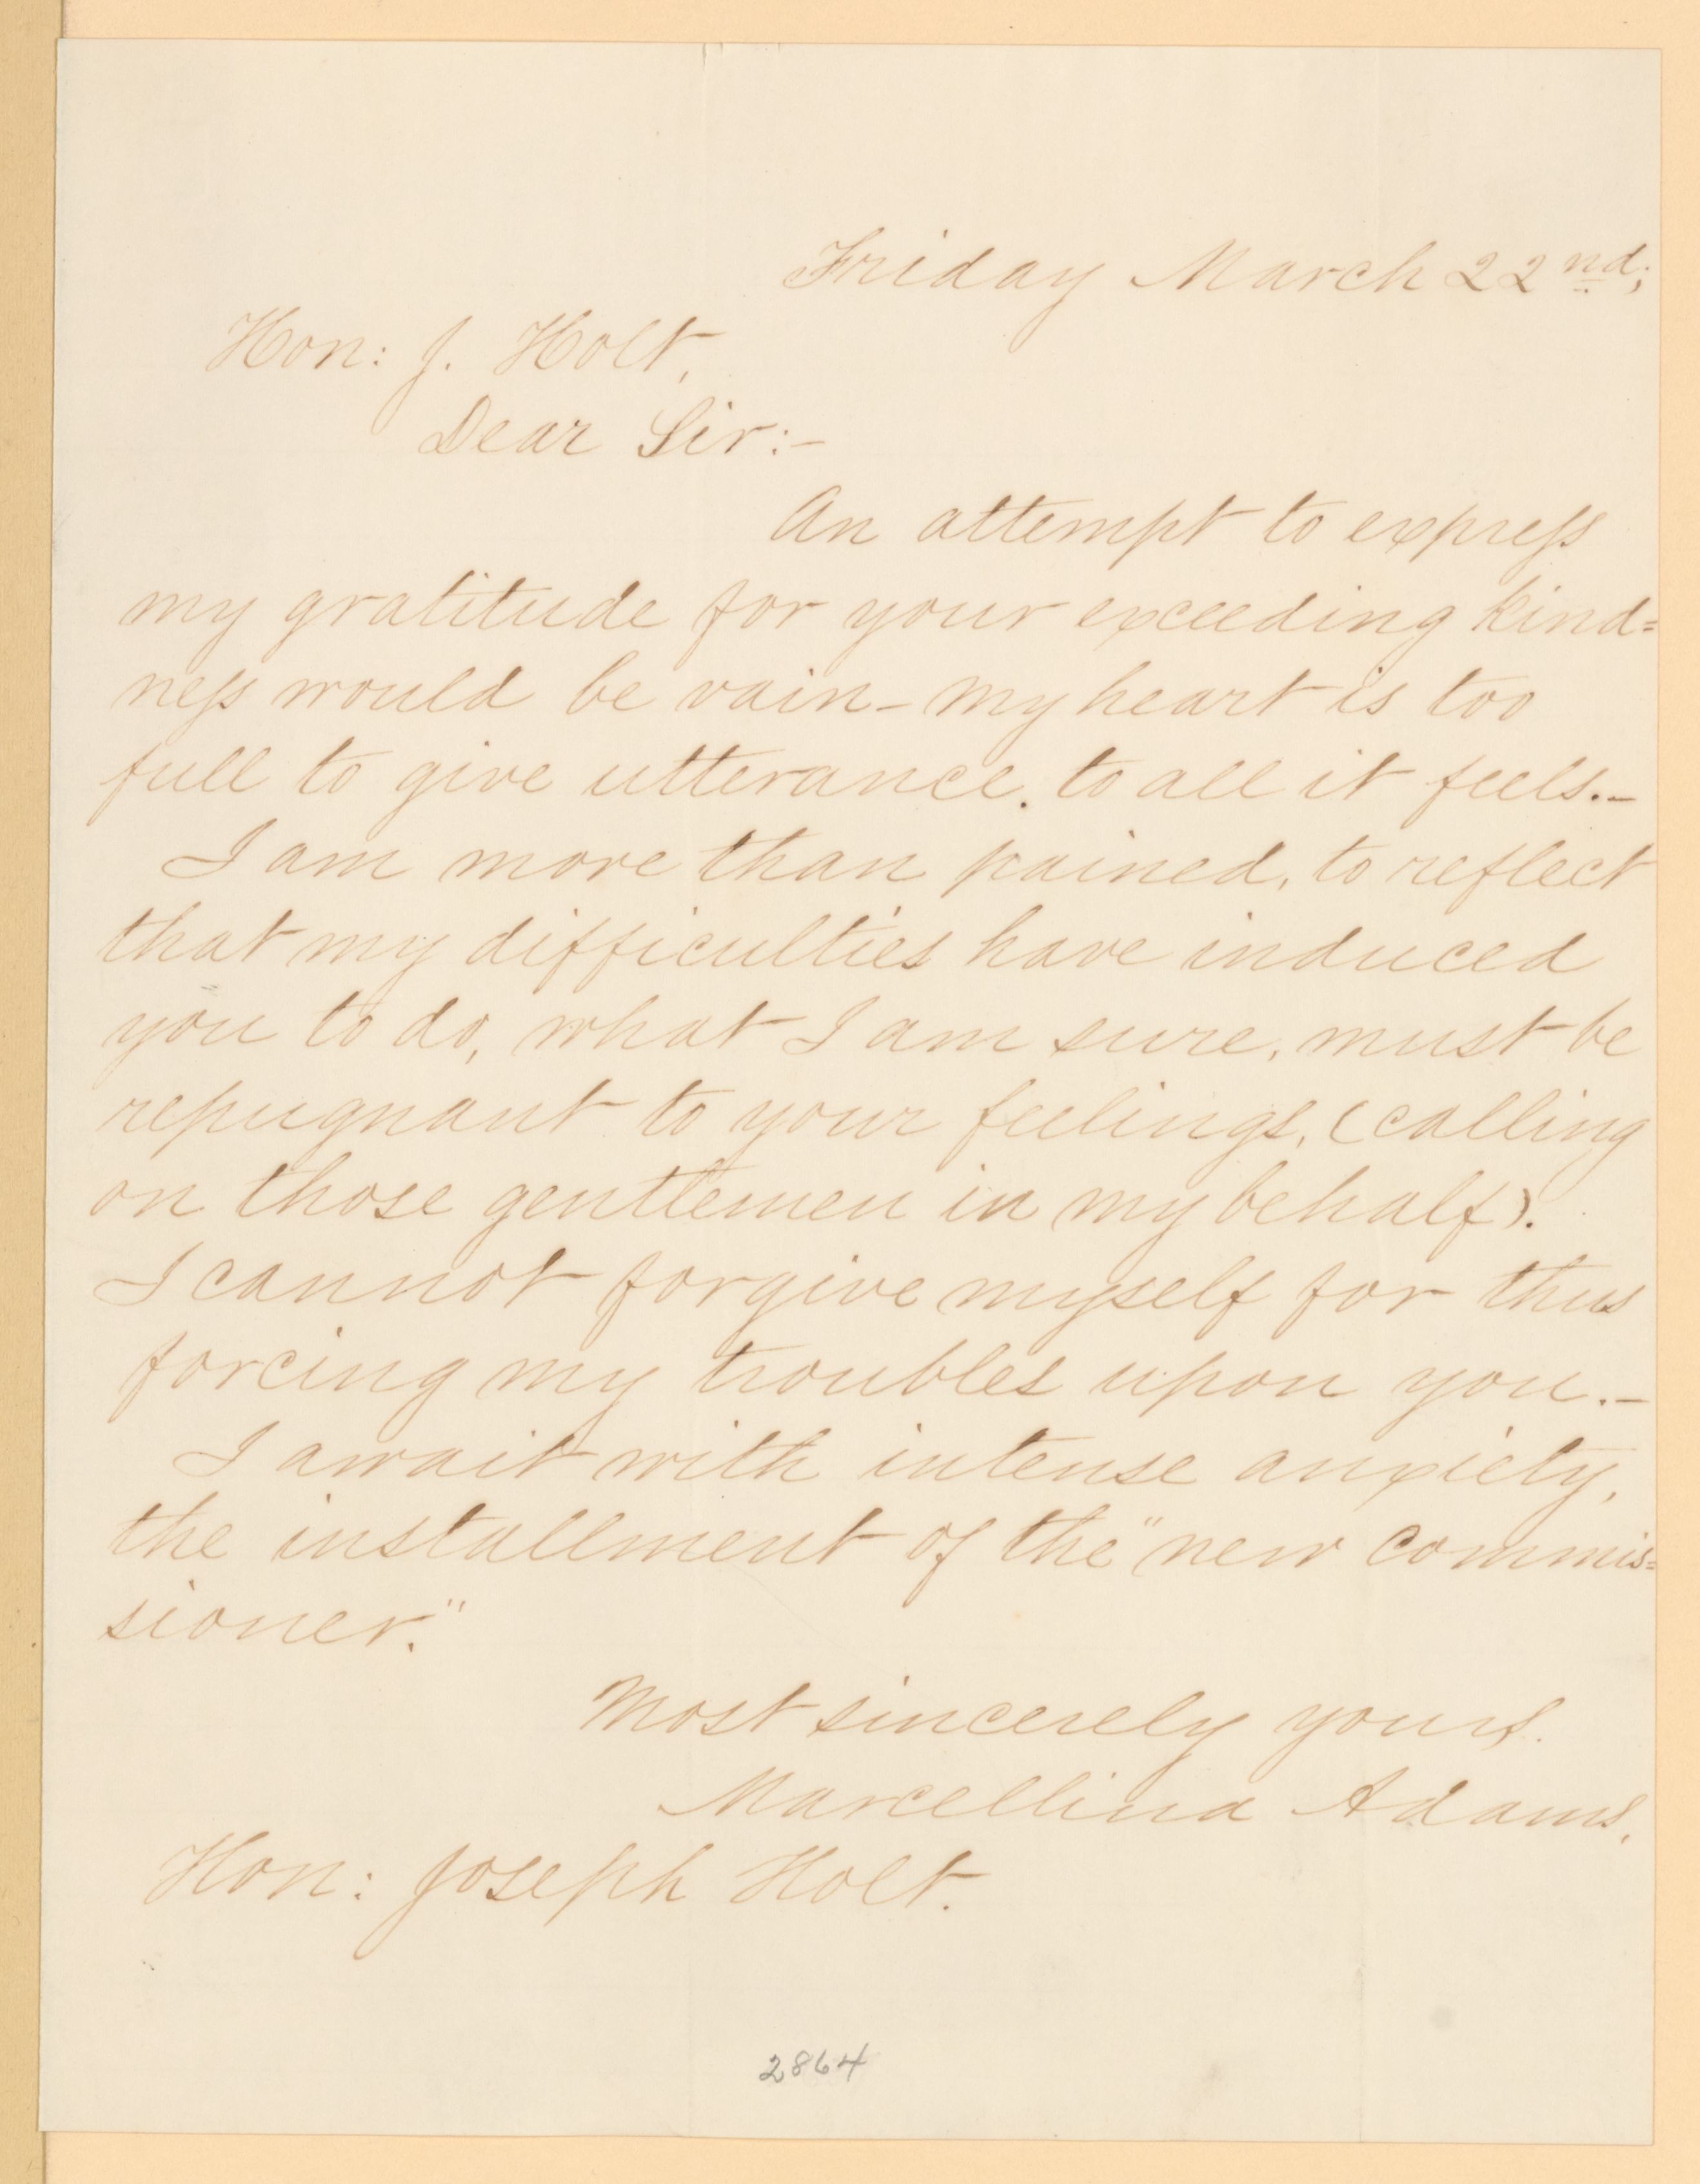 Friday March 22nd;
Hon: J. Holt,
Dear Sir:-
An attempt to express
my gratitude for your exceeding kind=
ness would be vain - my heart is too
full to give utterance. to all it feels.-
I am more than pained, to reflect
that my difficulties have induced
you to do, what I am sure, must be
repugnant to your feelings, (calling
on those gentlemen in my behalf).
I cannot forgive myself for thus
forcing my troubles upon you.-
I await with intense anxiety,
the installment of the "new commis=
sioner."
Most sincerely yours.
Marcellina Adams,
Hon: Joseph Holt.
2864